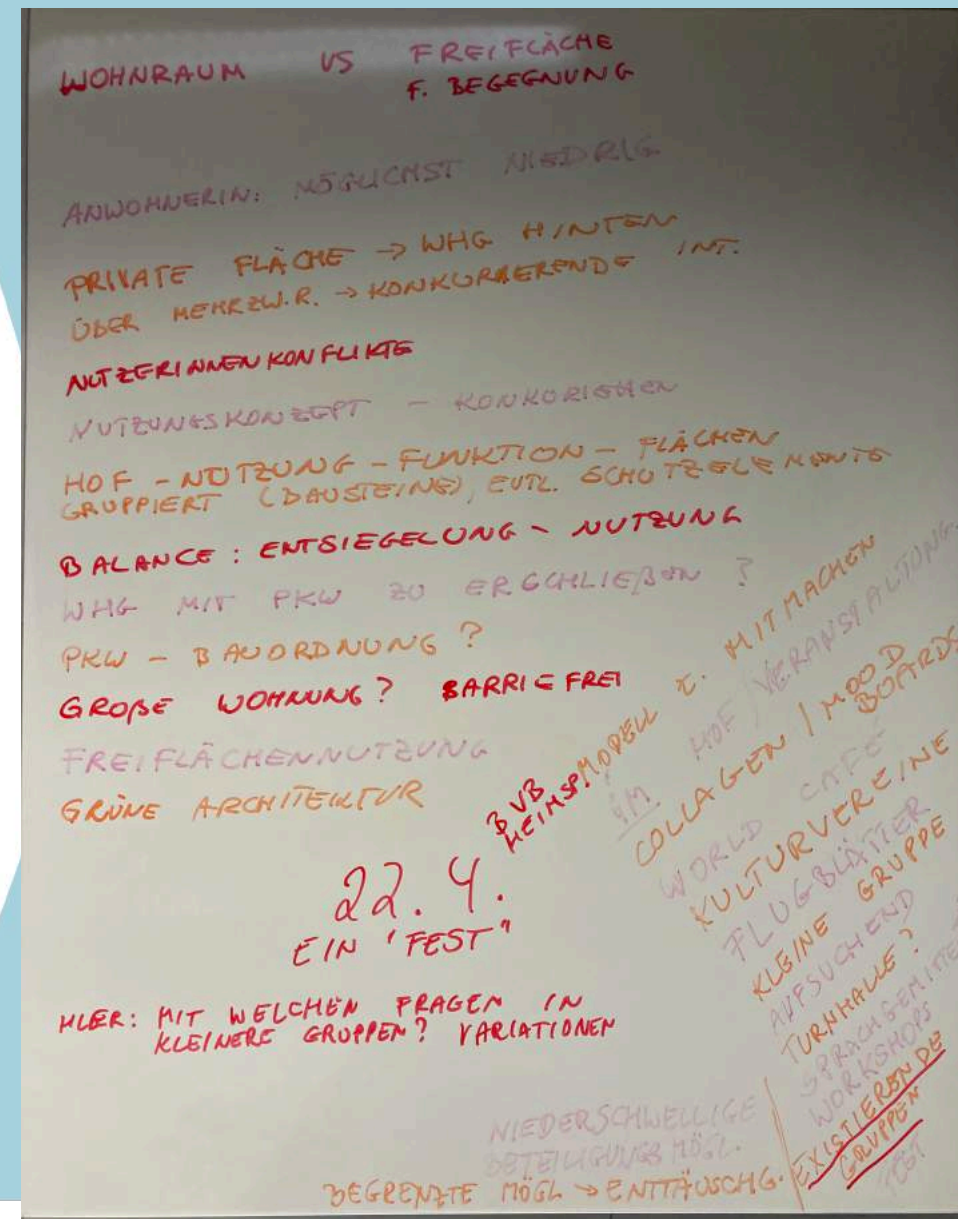 WOHNRAUM VS FREIFLÄCHE
F. BEGEGNUNG
ANWOHNERIN: MÖGLICHST NIEDRIG
PRIVATE FLÄCHE → WHG HINTEN
ÜBER MEHRZW.R. → KONKURRERENDE INT.
NUTZERINNENKONFLIKTE
NUTZUNGSKONZEPT -
HOF - NUTZUNG - FUNKTION - FLÄCHEN
GRUPPIERT (BAUSTEINE), EVTL. SCHUTZELEMENTE
BALANCE: ENTSIEGELUNG - NUTZUNG
WHG MIT PKW ZU ERSCHLIEßEN ?
PKW - BAUORDNUNG ?
GROßE WOHNUNG? BARRIEFREI
FREIFLÄCHENNUTZUNG
GRÜNE ARCHITEKTUR
22. 4.
EIN "FEST"
HLER: MIT WELCHEN FRAGEN IN
KLEINERE GRUPPEN? VARIATIONEN
BVB
HEIMSP. MODELL Z. MITMACHEN
HOF / VERANSTALTUNG
COLLAGEN / MOOD
BOARDS
WORLD CAFÉ
KULTURVEREINE
FLUGBLÄTTER
KLEINE GRUPPE
AUFSUCHEND
TURNHALLE?
WORKSHOPS
EXISTIERENDE
GRUPPEN
NIEDERSCHWELLIGE
BETEILIGUNGSMÖGL.
BEGRENZTE MÖGL → ENTTÄUSCHG.